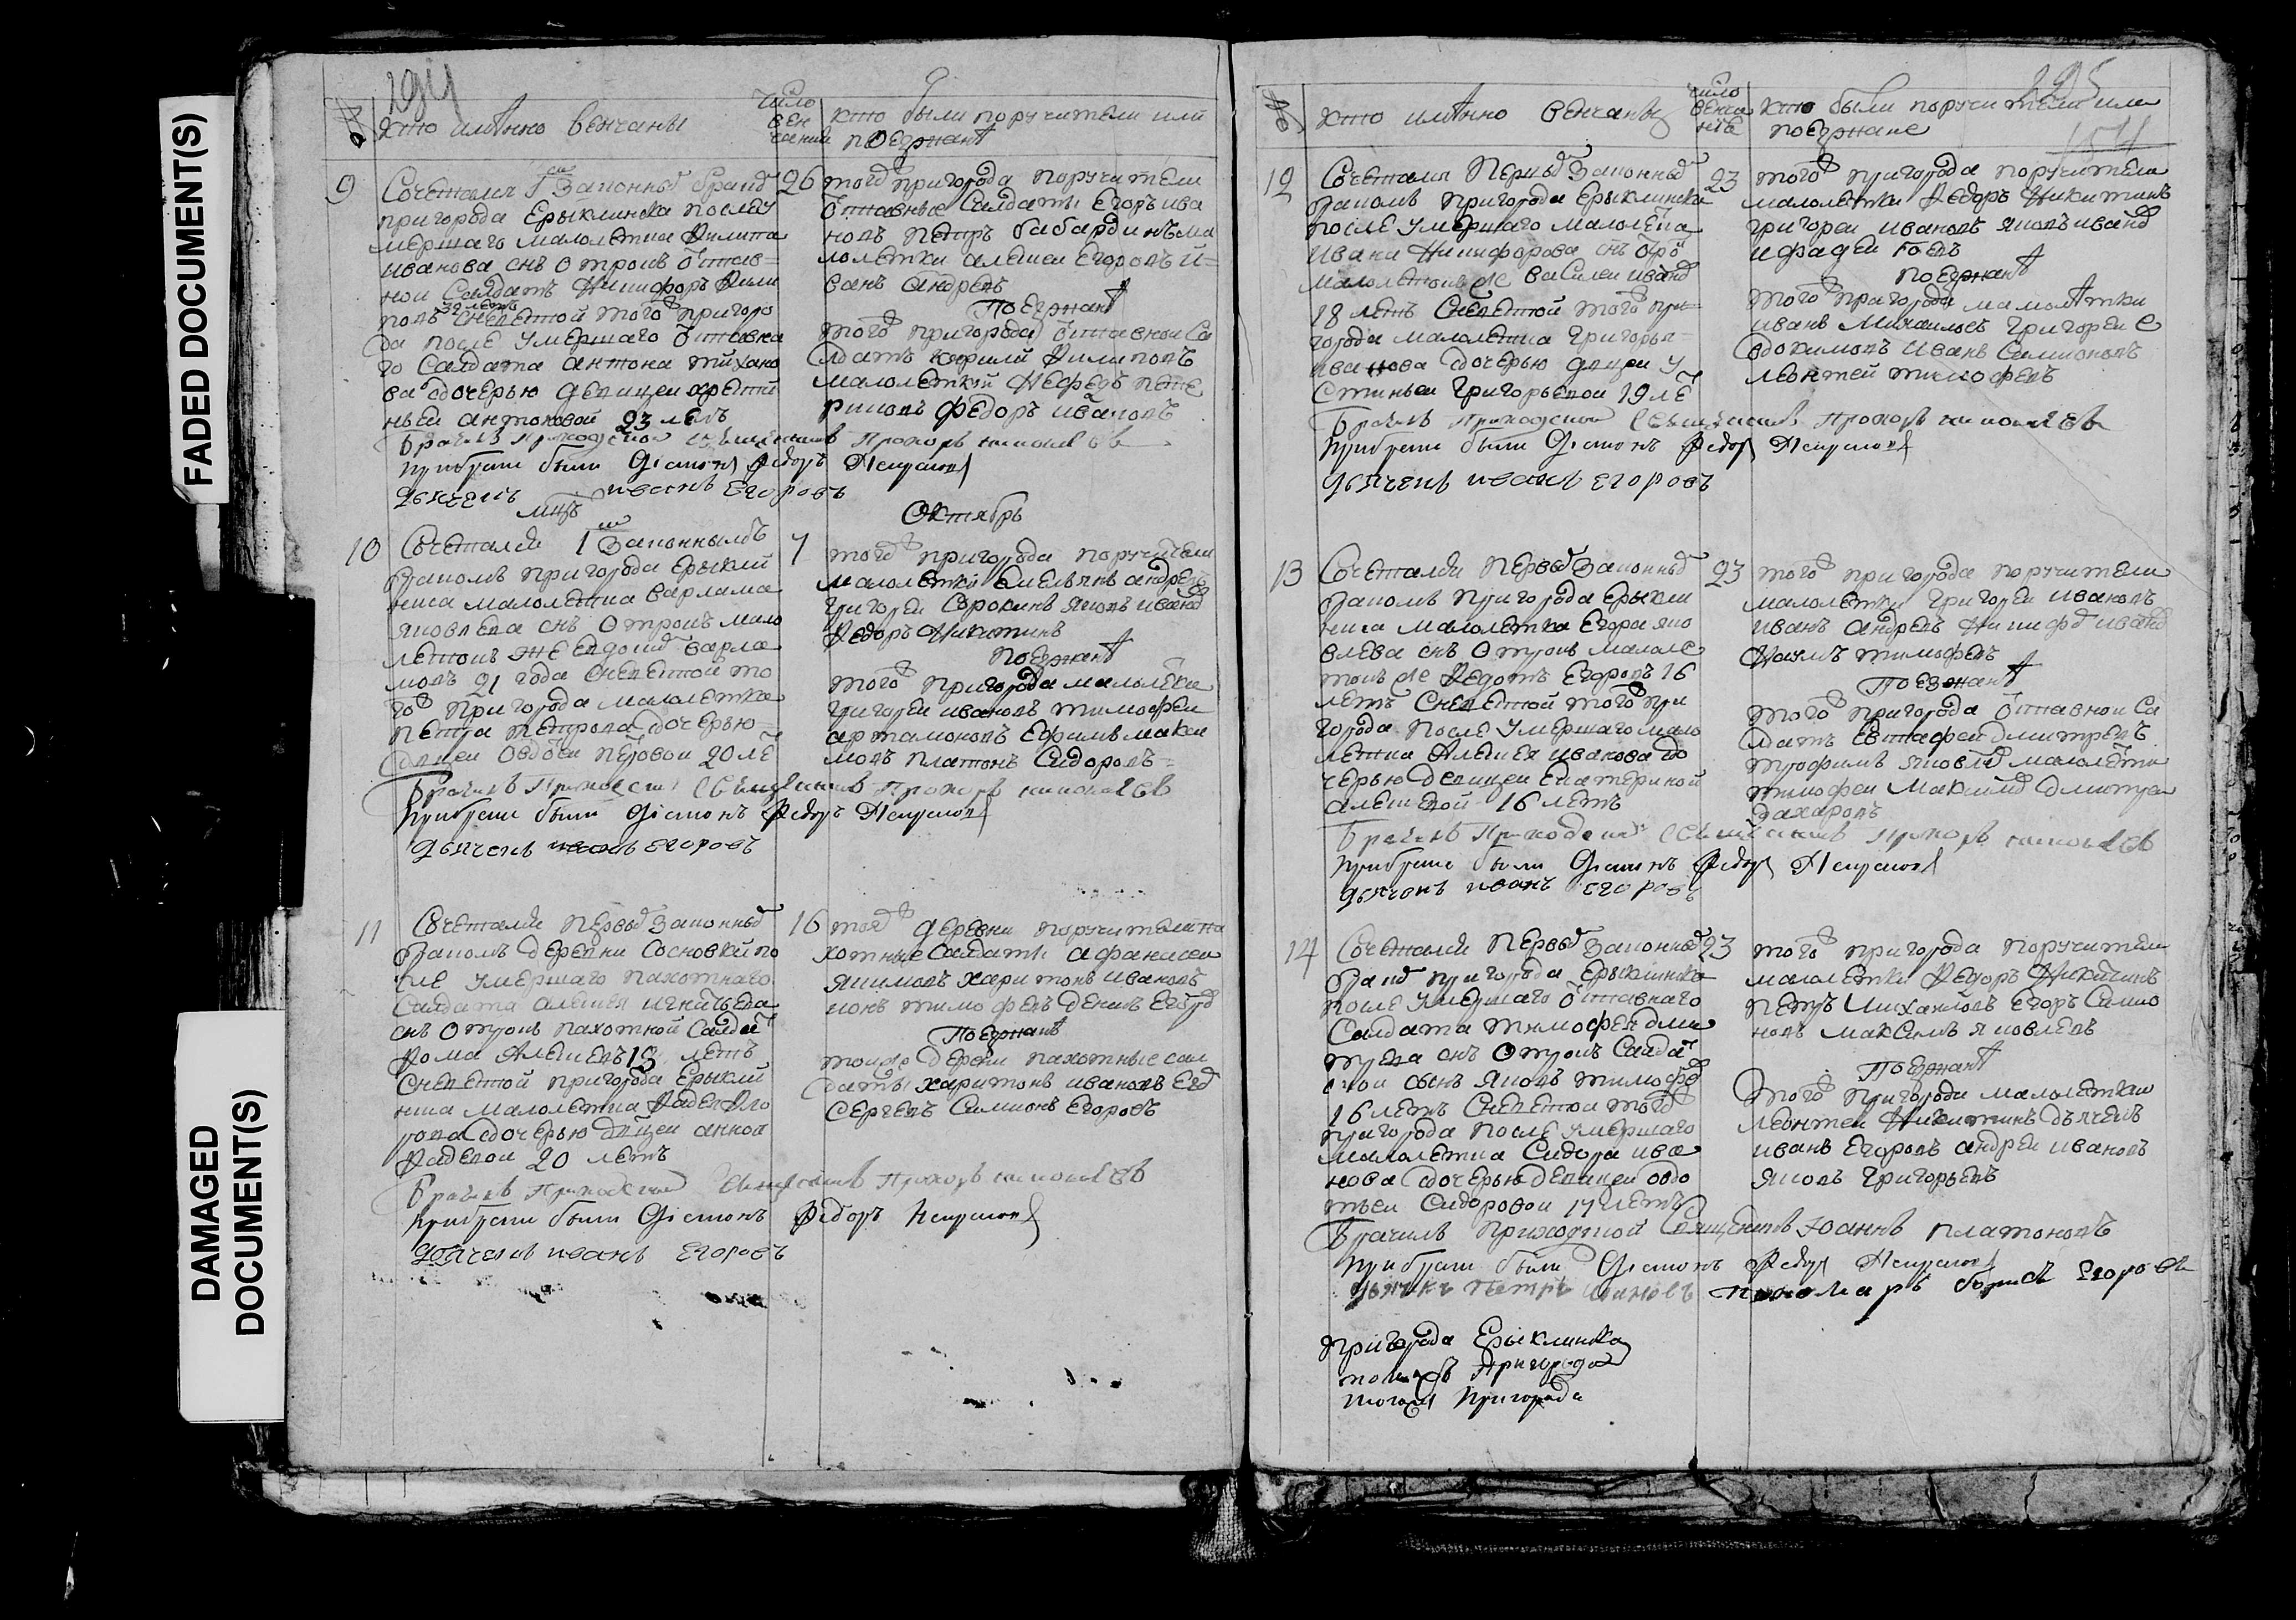 FADED DOCUMENT(S)
DAMAGED
DOCUMENT(S)
294
№ кто имѣнно венчаны
число
вен
чания
кто были поручители или
поезжанѣ
9
Сочетался 1м Законныɱ браɱ
пригорода Ерыклинска послѣ у
мершаго малолетка Филипа
иванова снъ отрокъ отстав=
нои Салдатъ Никифоръ Фили
повъ 32 летъ Снѣвестой того пригоро
да послѣ умершаго отставна
го Салдата антона тихано
ва дочерью девицеи хрести
ньеи антоновой 23 летъ
26
тогоɱ пригорода поручители
отставные Салдаты Егоръ ива
новъ Петръ бабардинъ ма
лолетки алексеи Егоровъ И=
ванъ андрѣевъ
Поезжанѣ
того пригорода отставной Са
лдатъ кирилй Филиповъ
малолеткй Нефедъ
Федоръ ивановъ
бракъ приходской священникъ Прохоръ
при бракѣ были Дьяконъ Федоръ
дьячекъ иванъ Егоровъ
мцъ Октябрь
10
Сочетался 1м Законнымъ
бракомъ пригорода Ерыкли
нска малолетка варлама
яковлева снъ отрокъ мало
летокъ же варла
мовъ 21 года Снѣвестой то
го пригорода малолетка
петра петрова дочерью
двцеи овдотьеи петровои 20 ле
7
того пригорода поручители
малолетки Емельянъ андрѣевъ
григореи Сорокинъ яковъ иванɱ
Федоръ Никитинъ
Поезжанѣ
того пригорода малолетки
григореи ивановъ тимофеи
артамоновъ Ефимъ макси
мовъ платонъ Сидоровъ=
бракъ приходской священникъ Прохоръ
при бракѣ были Дьяконъ Федоръ
дьячекъ иванъ Егоровъ
11
Сочетался Первыɱ Законныɱ
бракомъ деревни Сосновки по
сле умершаго пахотнаго
Салдата алексея игнатьева
снъ отрокъ пахотной Салда
Фома Алексѣевъ 18 летъ
Снѣвестой пригорода Ерыкли
нска малолетка Фадея Фло
рова дочерью двцеи анной
Фадеевои 20 летъ
16
тояɱ деревни поручители па
хотные Салдаты афанасеи
якимовъ харитонъ ивановъ
ионъ тимофѣевъ денисъ Егоɱ
Поезжанѣ
тояже деревни пахотные сал
даты харитонъ ивановъ Егоɱ
Сергѣевъ Симионъ Егоровъ
бракъ приходской священникъ Прохоръ
при бракѣ были Дьяконъ Федоръ
дьячекъ иванъ Егоровъ
295
154
№ кто имѣнно венчаны
число
венча
ние
кто были поручители или
поезжане
12
Сочетался Первыɱ Законныɱ
бракомъ пригорода Ерыклинска
послѣ умершаго малолетка
ивана Никифорова снъ отрок
малолетокъ же василеи иваноɱ
18 летъ Снѣвестой того при=
города малолетка григорья=
иванова дочерью двцеи у
стиньеи григорьевой 19 ле
23
того пригорода поручители
малолетки Федоръ Никитинъ
григореи ивановъ яковъ иванɱ
и фадеи
Поезжанѣ
того пригорода малолѣтки
иванъ Михаиловъ григореи е
вдокимовъ иванъ Симионовъ
леонтей тимофѣевъ
бракъ приходской священникъ Прохоръ
при бракѣ были Дьяконъ Федоръ
дьячекъ иванъ Егоровъ
13
Сочетался Первыɱ Законныɱ
бракомъ пригорода Ерыкли
нска малолетка Егора яко
влева снъ отрокъ малоле
токъ же Федотъ Егоровъ 16
летъ Снѣвестой того при
города послѣ умершаго мало
летка Алексея иванова до
черью девицеи Екатериной
алексѣевой 16 летъ
23
того пригорода поручители
малолетки григореи ивановъ
иванъ андрѣевъ Никифоɱ иваноɱ
Наумъ тимофѣевъ
Поезжанѣ
того пригорода отставнои Са
лдатъ Евстафеи дмитрѣевъ
трофимъ яковлɱ малолетки
тимофеи Максимоɱ дмитреи
Захаровъ
бракъ приходской священникъ Прохоръ
при бракѣ были Дьяконъ Федоръ
дьячекъ иванъ Егоровъ
14
Сочетался Первыɱ Законныɱ
браɱ пригорода Ерыклинска
послѣ умершаго отставнаго
Салдата тимофея дми
трева снъ отрокъ Салда
скои сынъ яковъ тимофɱ
16 летъ Снѣвестои того
пригорода послѣ умершаго
малолетка Сидора ива
нова дочерью девицеи овдо
тьеи Сидоровои 17 летъ
23
того пригорода поручители
малолетки Федоръ Никитинъ
петръ Михаиловъ Егоръ Симио
новъ максимъ яковлевъ
Поезжанѣ
того пригорода малолетки
леонтеи Никитинъ дьячекъ
иванъ Егоровъ андреи ивановъ
яковъ григорьевъ
Бракилъ приходской Священникъ Иоаннъ платоновъ
при бракѣ были Дьяконъ Федоръ
дьячикъ Петръ Ивановъ пономаръ борисъ Егоровъ
пригорода Ерыклинска
пригорода
тогож пригорода